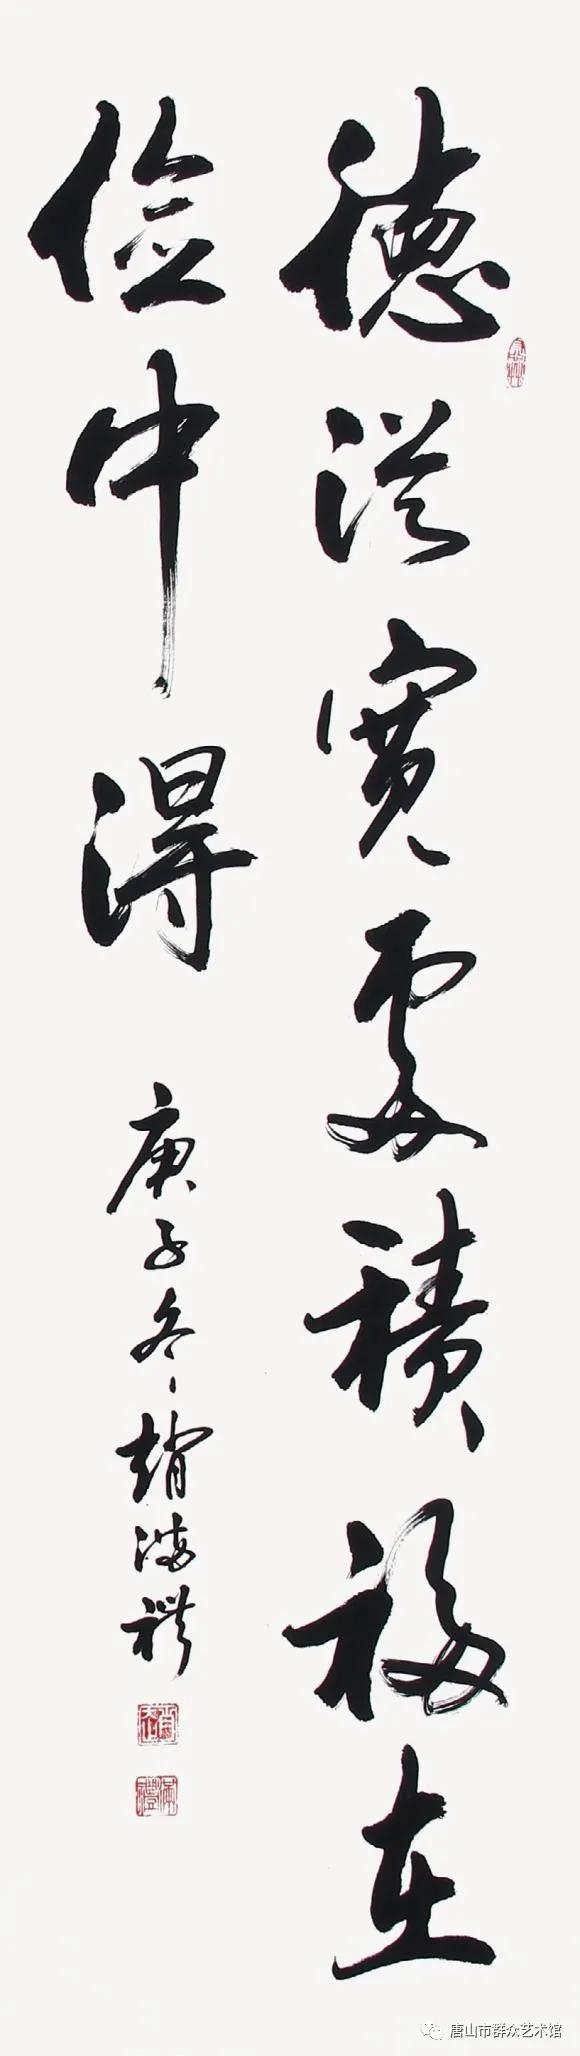 德從寬處積福在
儉中得
庚子冬趙海禮
唐山市群众艺术馆